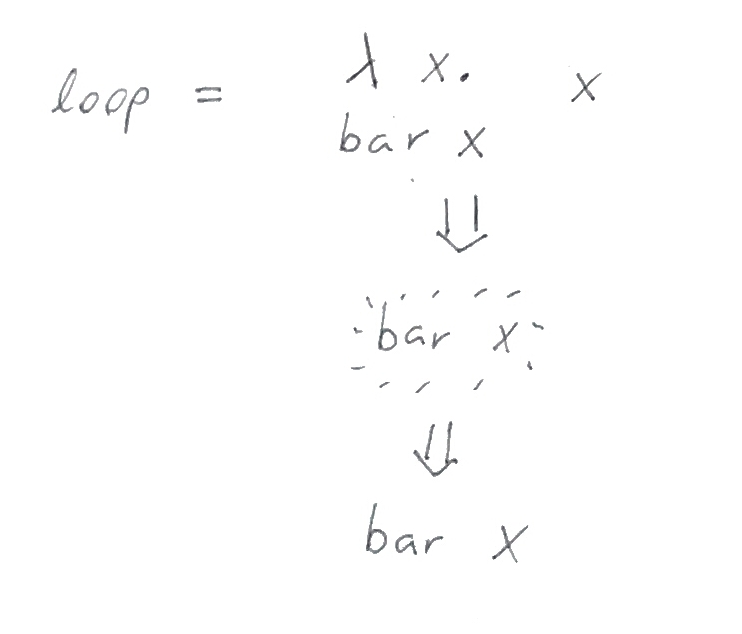 loop = λ x. x
bar x
⇓
bar x
⇓
bar x